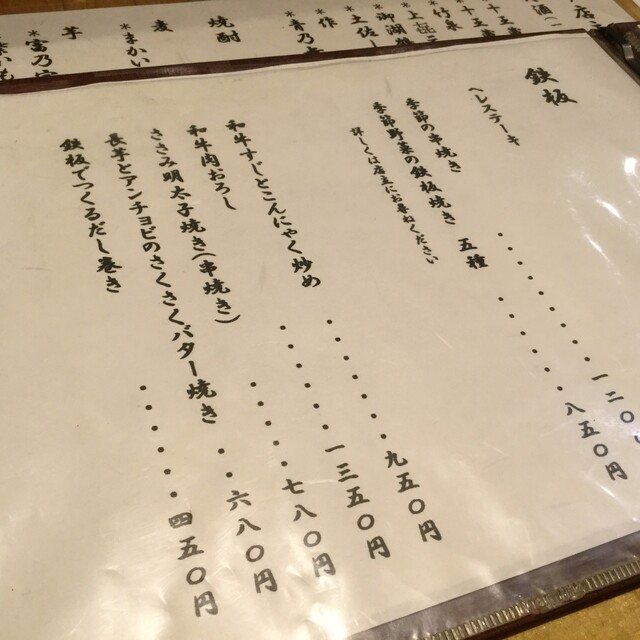 店
酒
*御湖
*土佐
*作
焼酎
麦
*まかい
芋
*富乃
鉄板
ヘレステーキ・・・・・・・一二〇
季節の串焼き
季節野菜の鉄板焼き 五種・・・・・八五〇円
詳しくは店主にお尋ねください
和牛すじとこんにゃく炒め・・・・・・・九五〇円
和牛肉おろし・・・・・・一三五〇円
ささみ明太子焼き(串焼き)・・・・・七八〇円
長芋とアンチョビのさくさくバター焼き・・六八〇円
鉄板でつくるだし巻き・・・・・・四五〇円